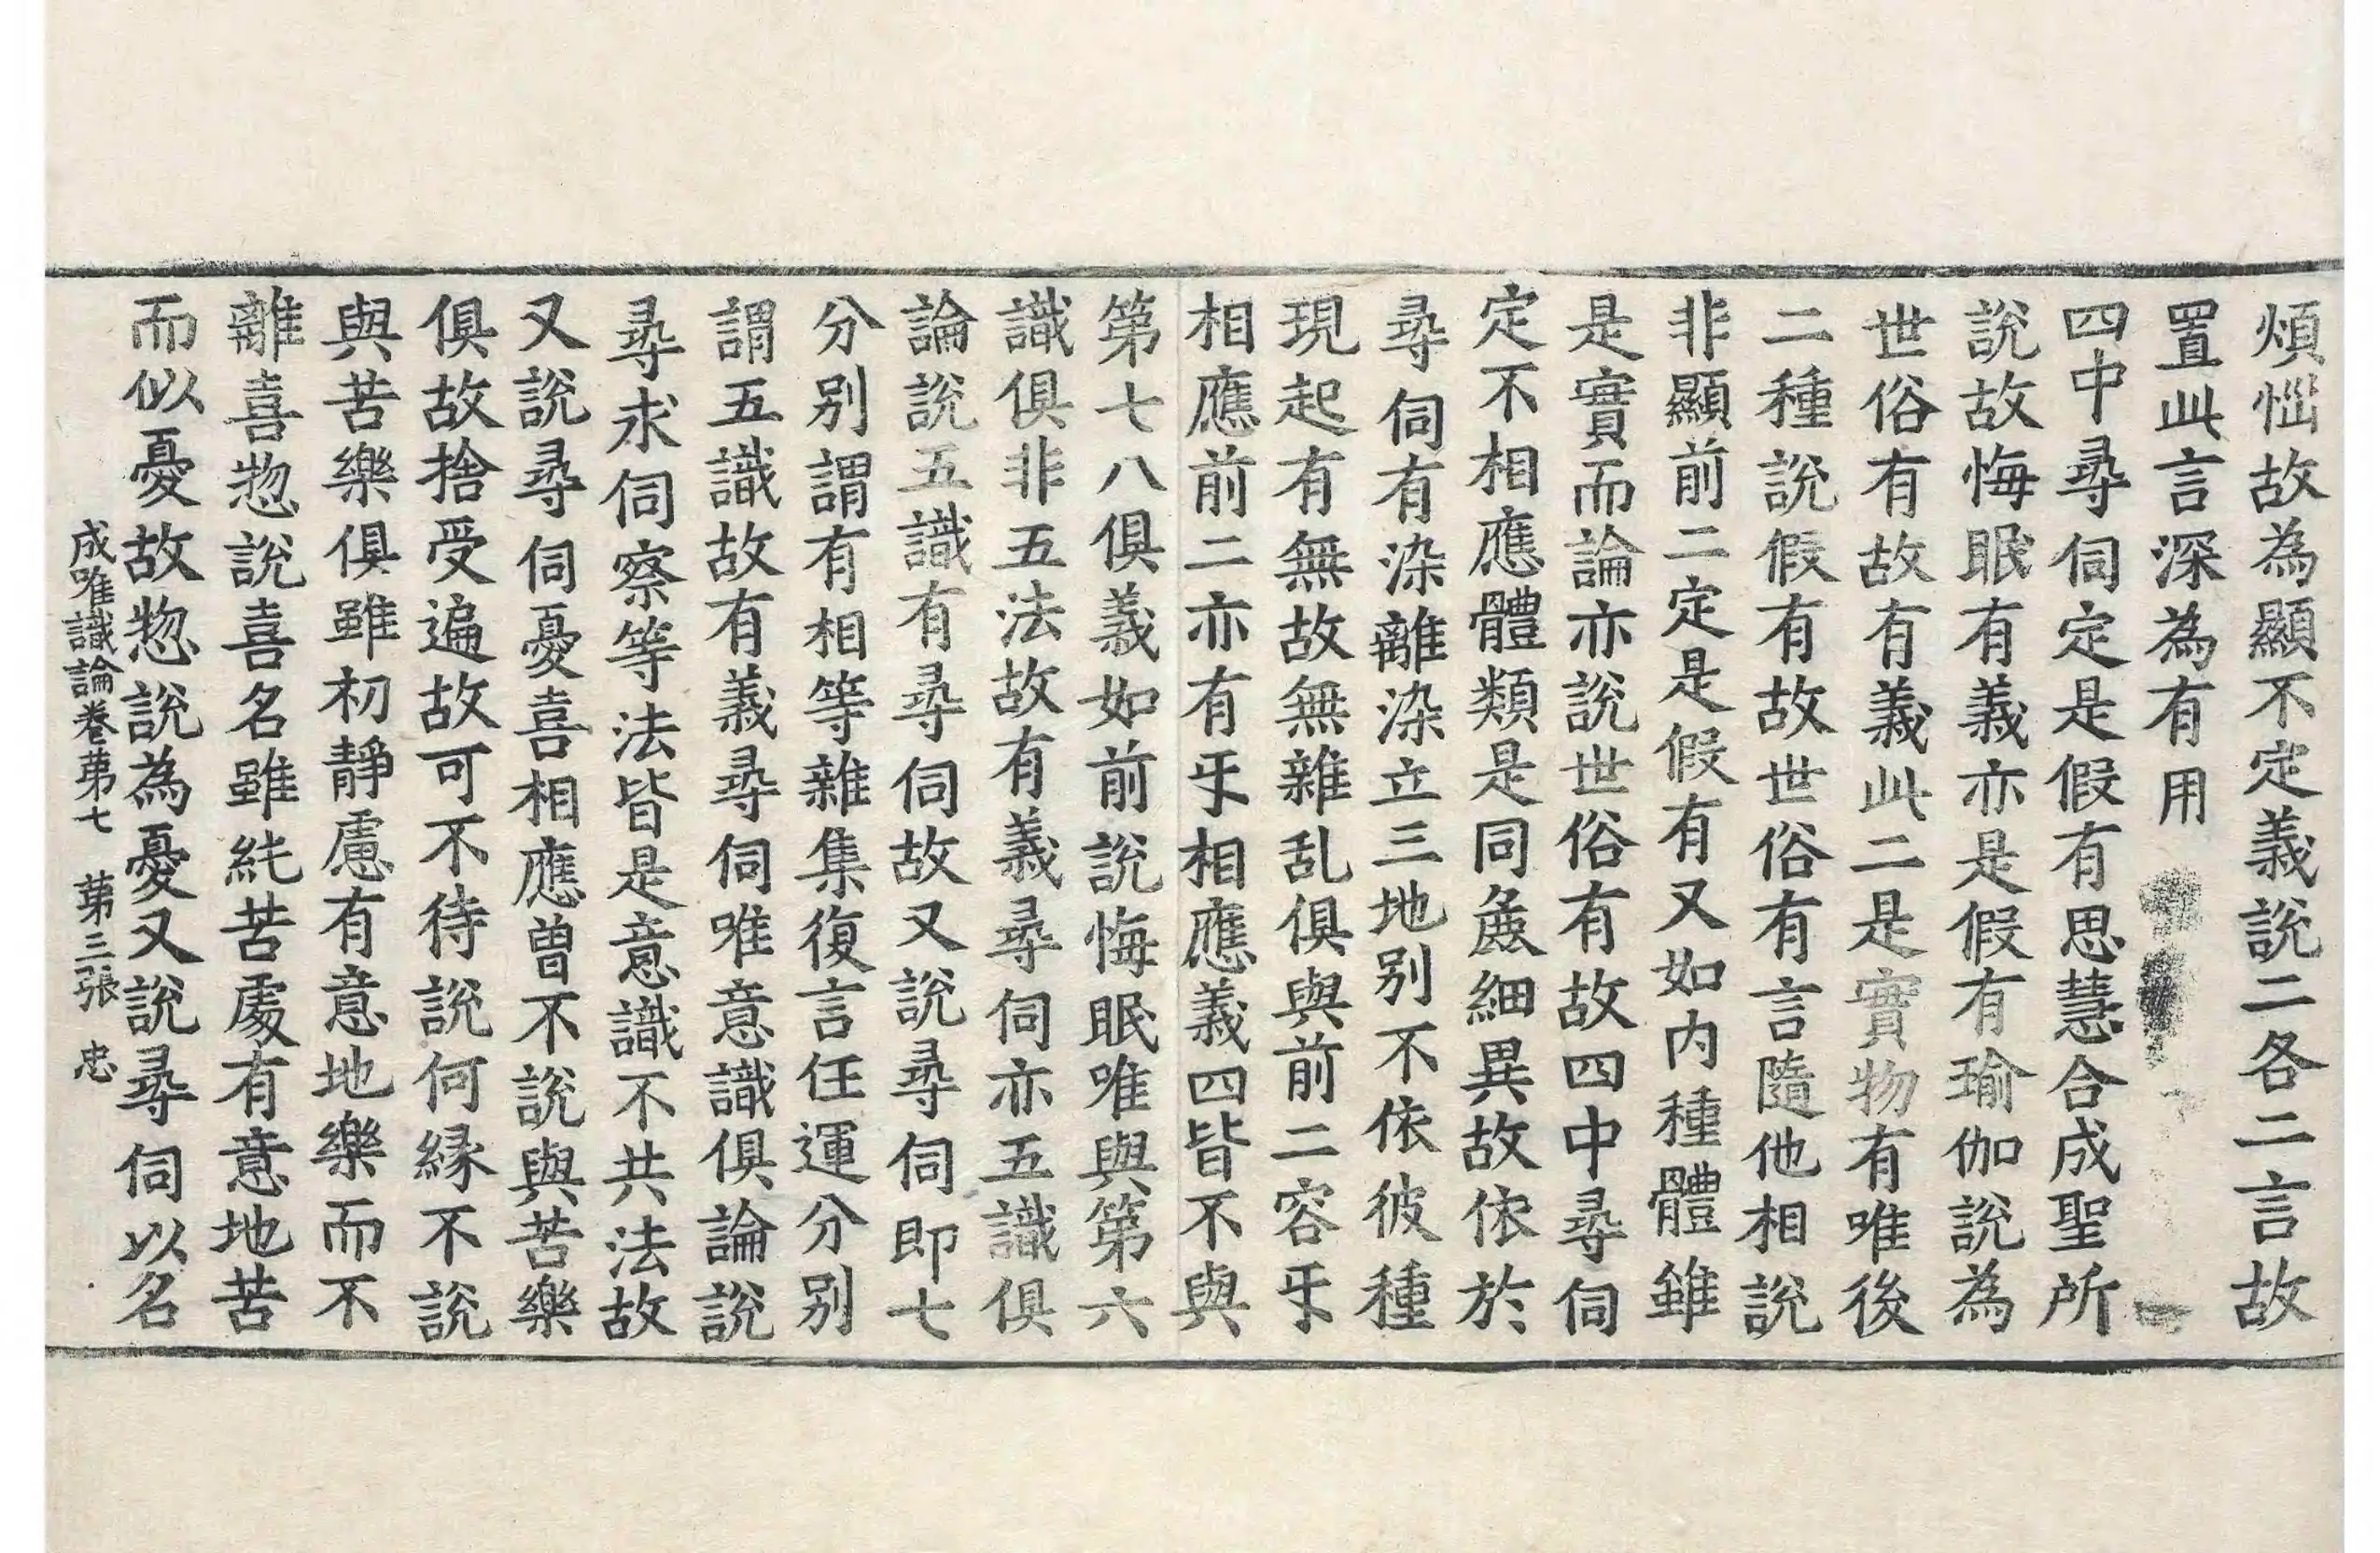 煩惱故為顯不定義說二各二言故
置此言深為有用
四中尋伺定是假有思慧合成聖所
說故悔眠有義亦是假有瑜伽說為
世俗有故有義此二是實物有唯後
二種說假有故世俗有言隨他相說
非顯前二定是假有又如内種體雖
是實而論亦說世俗有故四中尋伺
定不相應體類是同麁細異故依於
尋伺有染離染立三地別不依彼種
現起有無故無雜乱俱與前二容乎
相應前二亦有乎相應義四皆不與
第七八俱義如前說悔眠唯與第六
識俱非五法故有義尋伺亦五識俱
論說五識有尋伺故又說尋伺即七
分別謂有相等雜集復言任運分別
謂五識故有義尋伺唯意識俱論說
尋求伺察等法皆是意識不共法故
又說尋伺憂喜相應曾不說與苦樂
俱故捨受遍故可不待說何緣不說
與苦樂俱雖初靜慮有意地樂而不
離喜惣說喜名雖純苦處有意地苦
而似憂故惣說為憂又說尋伺以名
成唯識論卷苐七 苐三張 忠